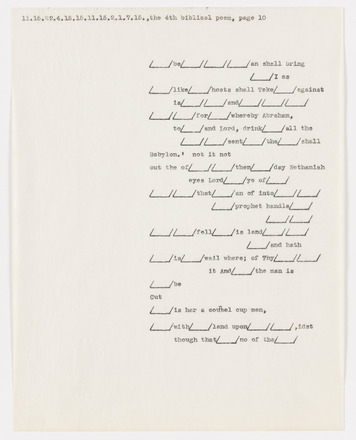 11.15.22.4.15.15.11.15.2.1.7.15.,the 4th biblical poem, page 10
/____/be/____/ /____/ /____/an shall bring
/____/I as
/____/like/____/hosts shall Teke/____/against
is/____/ /____/and/____/ /____/ /____/
/____/ /____/for/____/whereby Abraham,
to/____/and Lord, drink/____/all the
/____/ /____/sent/____/the/____/shall
Babylon.' not it not
out the of/____/ /____/then/____/day Nethaniah
eyes Lord/____/ye of/____/
/____/ /____/that/____/an of into/____/ /____/
/____/prophet hands/____/
/____/ /____/
/____/ /____/fell/____/is land/____/ /____/
/____/and hath
/____/is/____/wail where; of Thy/____/ /____/
it And/____/the man is
/____/be
Cut
/____/is her a counsel cup men,
/____/with/____/land upon/____/ /____/,idst
though that/____/no of the/____/